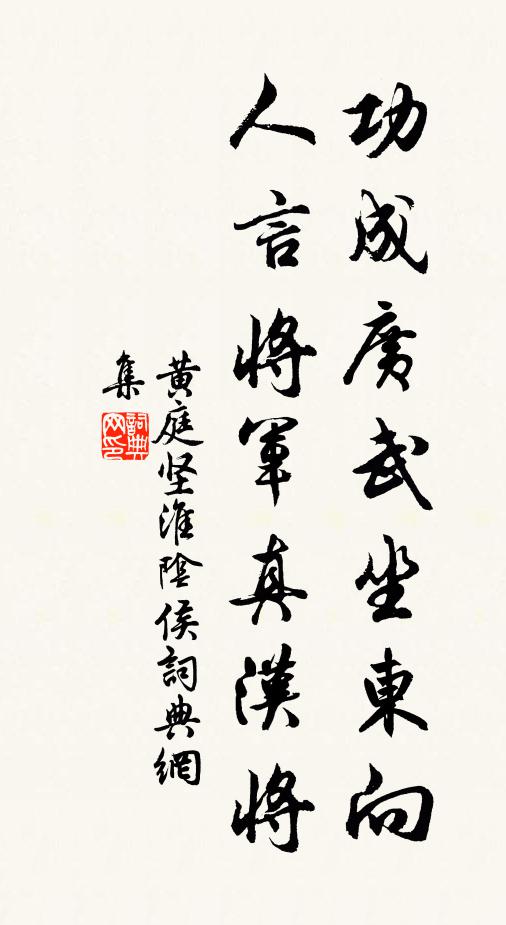 功成廣武坐東向
人言將軍真漢將
黄庭坚淮陰侯詞典網
集
詞典
网印